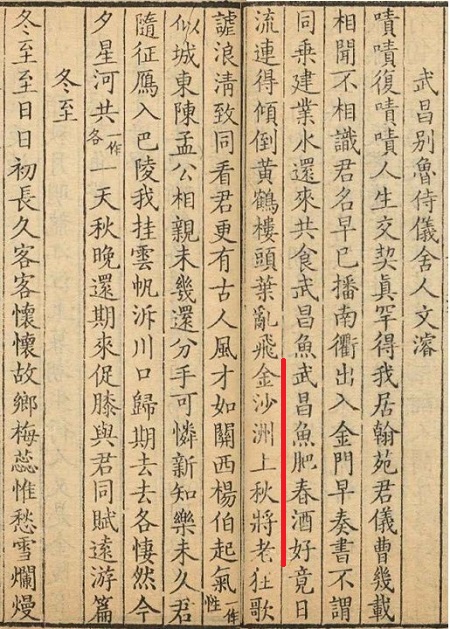 武昌别魯侍儀舍人文濬
嘖嘖復嘖嘖人生交契眞罕得我居翰苑君儀曹幾載
相聞不相識君名早已播南衢出入金門早奏書不謂
同乗建業水還來共食武昌魚武昌魚肥春酒好竟日
流連得傾倒黄鶴樓頭葉亂飛金沙洲上秋將老狂歌
謔浪清致同看君更有古人風才如關西楊伯起氣作性
似城東陳孟公相親未幾還分手可憐新知樂未久君
隨征鴈入巴陵我挂雲帆泝川口歸期去去各悽然今
夕星河共一作各一天秋晚還期來促膝與君同賦遠游篇
冬至
冬至至日日初長久客客懷懷故鄉梅蕊惟愁雪爛熳